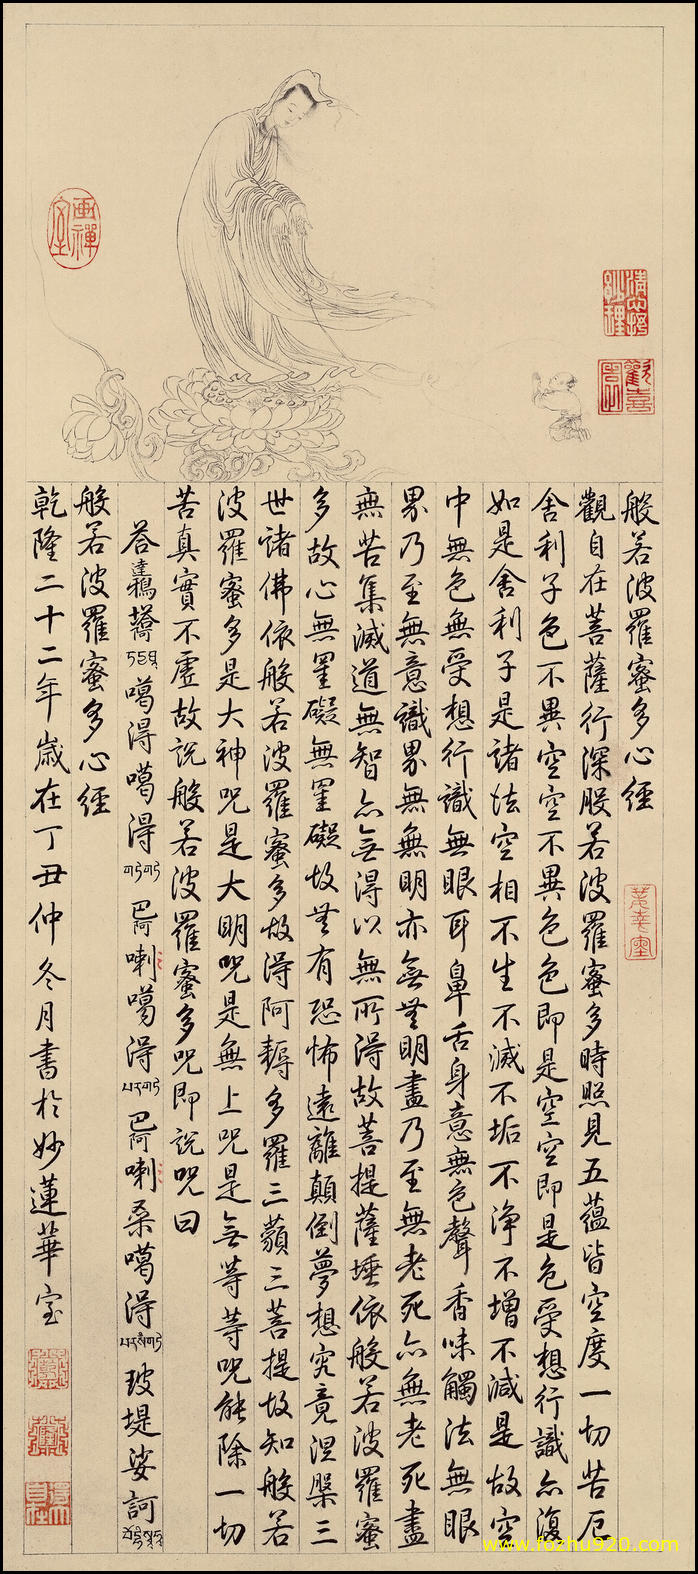 畫禪室
般若波羅蜜多心經
觀自在菩薩行深般若波羅蜜多時照見五蘊皆空度一切苦厄
舍利子色不異空空不異色色即是空空即是色受想行識亦復
如是舍利子是諸法空相不生不滅不垢不淨不增不減是故空
中無色無受想行識無眼耳鼻舌身意無色聲香味觸法無眼
界乃至無意識界無無明亦無無明盡乃至無老死亦無老死盡
無苦集滅道無智亦無得以無所得故菩提薩埵依般若波羅蜜
多故心無罣礙無罣礙故無有恐怖遠離顛倒夢想究竟涅槃三
世諸佛依般若波羅蜜多故得阿耨多羅三藐三菩提故知般若
波羅蜜多是大神咒是大明咒是無上咒是無等等咒能除一切
苦真實不虛故說般若波羅蜜多咒即說咒曰
噶得噶得巴阿喇噶得巴阿喇桑噶得玻堤娑訶
般若波羅蜜多心經
乾隆二十二年歲在丁丑仲冬月書於妙蓮華室
www.fozhu920.com